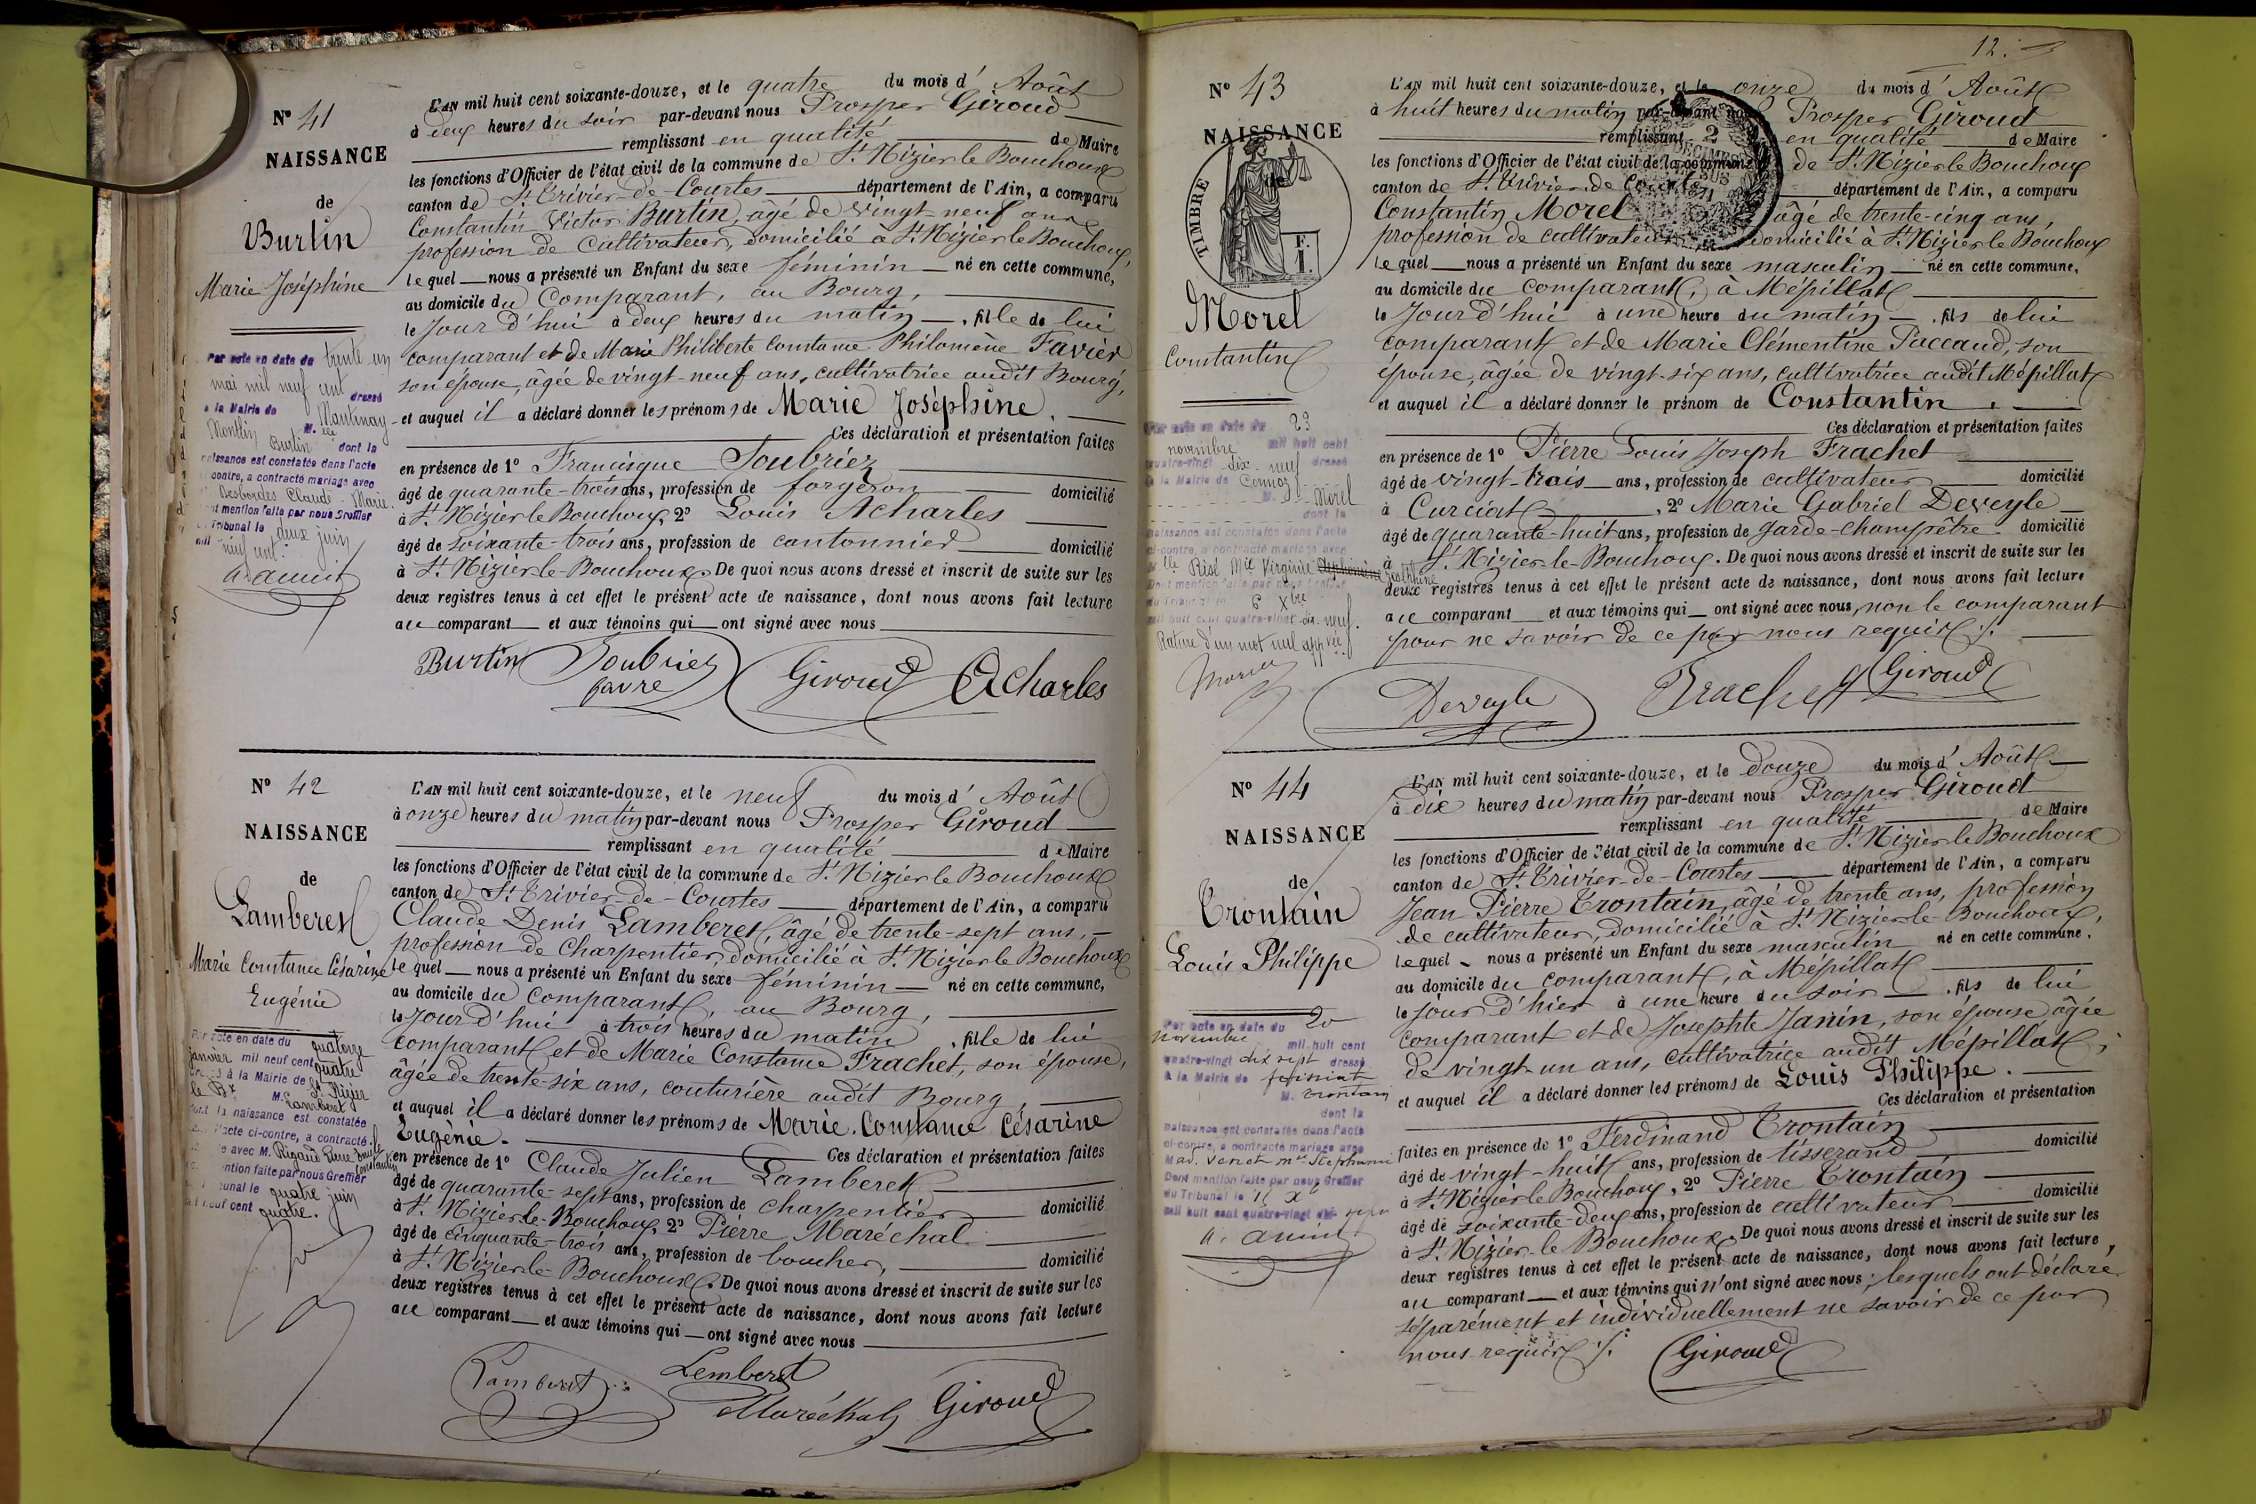 Nº 41
NAISSANCE
de
Burtin
Marie Joséphine
Par acte en date du trente un
mai mil neuf cent dressé
à la Mairie de Mantenay
Montlin M.elle
Burtin dont la
naissance est constatée dans l'acte
contre, a contracté mariage avec
Desbordes Claude-Marie.
mention faite par nous Greffier
Tribunal le deux juin
mil neuf cent.
L'AN mil huit cent soixante-douze, et le quatre du mois d' Août
à deux heures du soir par-devant nous Prosper Giroud
remplissant en qualité de Maire
les fonctions d'Officier de l'état civil de la commune de St. Nizier le Bouchoux
canton de St. Trivier-de-Courtes département de l'Ain, a comparu
Constantin Victor Burtin, âgé de vingt-neuf ans,
profession de cultivateur, domicilié à St. Nizier le Bouchoux,
lequel nous a présenté un Enfant du sexe féminin né en cette commune,
au domicile du Comparant, au Bourg,
le jour d'hui à deux heures du matin, fille de lui
comparant et de Marie Philiberte Constance Philomène Favier
son épouse, âgée de vingt-neuf ans, cultivatrice audit Bourg,
et auquel il a déclaré donner les prénoms de Marie Joséphine.
Ces déclaration et présentation faites
en présence de 1º Francisque Soubriez
âgé de quarante-trois ans, profession de forgeron domicilié
à St. Nizier le Bouchoux, 2º Louis Acharles
âgé de soixante-trois ans, profession de cantonnier domicilié
à St. Nizier-le-Bouchoux. De quoi nous avons dressé et inscrit de suite sur les
deux registres tenus à cet effet le présent acte de naissance, dont nous avons fait lecture
au comparant et aux témoins qui ont signé avec nous
Burtin Soubriez Giroud Acharles
favre
Nº 42
NAISSANCE
de
Lamberet
Marie Constance Césarine
Eugénie
Par acte en date du quatorze
janvier mil neuf cent quatre
dressé à la Mairie de St Nizier
le Bx M. Lamberet
dont la naissance est constatée
acte ci-contre, a contracté
avec M. Rigaud Pierre
Constantin
mention faite par nous Greffier
tribunal le quatre juin
mil neuf cent quatre.
L'AN mil huit cent soixante-douze, et le neuf du mois d' Août
à onze heures du matin par-devant nous Prosper Giroud
remplissant en qualité de Maire
les fonctions d'Officier de l'état civil de la commune de St. Nizier le Bouchoux
canton de St. Trivier-de-Courtes département de l'Ain, a comparu
Claude Denis Lamberet, âgé de trente-sept ans,
profession de Charpentier, domicilié à St. Nizier le Bouchoux
lequel nous a présenté un Enfant du sexe féminin né en cette commune,
au domicile du comparant, au Bourg,
le jour d'hui à trois heures du matin, fille de lui
comparant et de Marie Constance Frachet, son épouse,
âgée de trente-six ans, couturière audit Bourg,
et auquel il a déclaré donner les prénoms de Marie Constance Césarine
Eugénie. Ces déclaration et présentation faites
en présence de 1º Claude Julien Lamberet
âgé de quarante-sept ans, profession de charpentier domicilié
à St. Nizier le-Bouchoux, 2º Pierre Maréchal
âgé de cinquante-trois ans, profession de boucher, domicilié
à St. Nizier le-Bouchoux. De quoi nous avons dressé et inscrit de suite sur les
deux registres tenus à cet effet le présent acte de naissance, dont nous avons fait lecture
au comparant et aux témoins qui ont signé avec nous
Lamberet Lemberet
Maréchal Giroud
12.
Nº 43
NAISSANCE
TIMBRE
F.
1.
Morel
Constantin
Par acte en date du 23
novembre mil huit cent
quatre-vingt dix-neuf dressé
à la Mairie de
M. Morel
dont la
naissance est constatée dans l'acte
ci-contre, a contracté mariage avec
elle Rial Mie Virginie Joséphine
Dont mention faite par nous Greffier
du Tribunal le 6 Xbre
mil huit cent quatre-vingt dix-neuf.
Rature d'un mot nul appvée
L'AN mil huit cent soixante-douze, et le onze du mois d' Août
à huit heures du matin par-devant nous Prosper Giroud
remplissant en qualité de Maire
2
DÉCIMES
EN SUS
les fonctions d'Officier de l'état civil de la commune de St. Nizier le Bouchoux
canton de St. Trivier-de-Courtes département de l'Ain, a comparu
Constantin Morel âgé de trente-cinq ans,
profession de cultivateur domicilié à St. Nizier le Bouchoux
lequel nous a présenté un Enfant du sexe masculin né en cette commune,
au domicile du comparant, à Mépillat
le jour d'hui à une heure du matin, fils de lui
comparant et de Marie Clémentine Paccaud, son
épouse, âgée de vingt-six ans, cultivatrice audit Mépillat
et auquel il a déclaré donner le prénom de Constantin.
Ces déclaration et présentation faites
en présence de 1º Pierre Louis Joseph Frachet
âgé de vingt-trois ans, profession de cultivateur domicilié
à Curciat, 2º Marie Gabriel Deveyle
âgé de quarante-huit ans, profession de garde-champêtre domicilié
à St. Nizier-le-Bouchoux. De quoi nous avons dressé et inscrit de suite sur les
deux registres tenus à cet effet le présent acte de naissance, dont nous avons fait lecture
au comparant et aux témoins qui ont signé avec nous, non le comparant
pour ne savoir de ce par nous requis ./.
Deveyle Frachet Giroud
Nº 44
NAISSANCE
de
Trontain
Louis Philippe
Par acte en date du 20
novembre mil huit cent
quatre-vingt dix sept dressé
à la Mairie de foissiat
M. Trontain
dont la
naissance est constatée dans l'acte
ci-contre, a contracté mariage avec
Mad. Mie Stéphanie
Dont mention faite par nous Greffier
du Tribunal le
mil huit cent quatre-vingt dix-sept
L'AN mil huit cent soixante-douze, et le douze du mois d' Août
à dix heures du matin par-devant nous Prosper Giroud
remplissant en qualité de Maire
les fonctions d'Officier de l'état civil de la commune de St. Nizier le Bouchoux
canton de St. Trivier-de-Courtes département de l'Ain, a comparu
Jean Pierre Trontain, âgé de trente ans, profession
de cultivateur, domicilié à St. Nizier-le-Bouchoux,
lequel nous a présenté un Enfant du sexe masculin né en cette commune,
au domicile du comparant, à Mépillat
le jour d'hier à une heure du soir, fils de lui
comparant et de Josephte Janin, son épouse âgée
de vingt-un ans, cultivatrice audit Mépillat,
et auquel il a déclaré donner les prénoms de Louis Philippe.
Ces déclaration et présentation
faites en présence de 1º Ferdinand Trontain
âgé de vingt-huit ans, profession de tisserand domicilié
à St. Nizier le Bouchoux, 2º Pierre Trontain
âgé de soixante-deux ans, profession de cultivateur domicilié
à St. Nizier-le Bouchoux. De quoi nous avons dressé et inscrit de suite sur les
deux registres tenus à cet effet le présent acte de naissance, dont nous avons fait lecture,
au comparant et aux témoins qui n'ont signé avec nous; lesquels ont déclaré
séparément et individuellement ne savoir de ce par
nous requis ./. Giroud